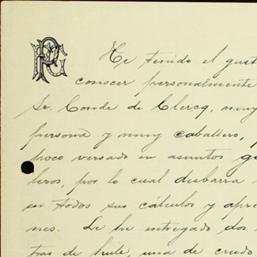 He tenido el gust
conocer personalmente
Sr. Conde de Clercq, muy
persona y muy caballero,
poco versado en asuntos ga
leros, por lo cual desbarra
en todos sus cálculos y apre
nes. Le he entregado dos
tras de hule, una de crudo